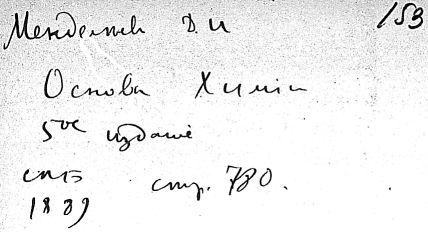 Менделеев Д И 153
Основы Химии
5ое издание
СПБ стр. 780.
1889